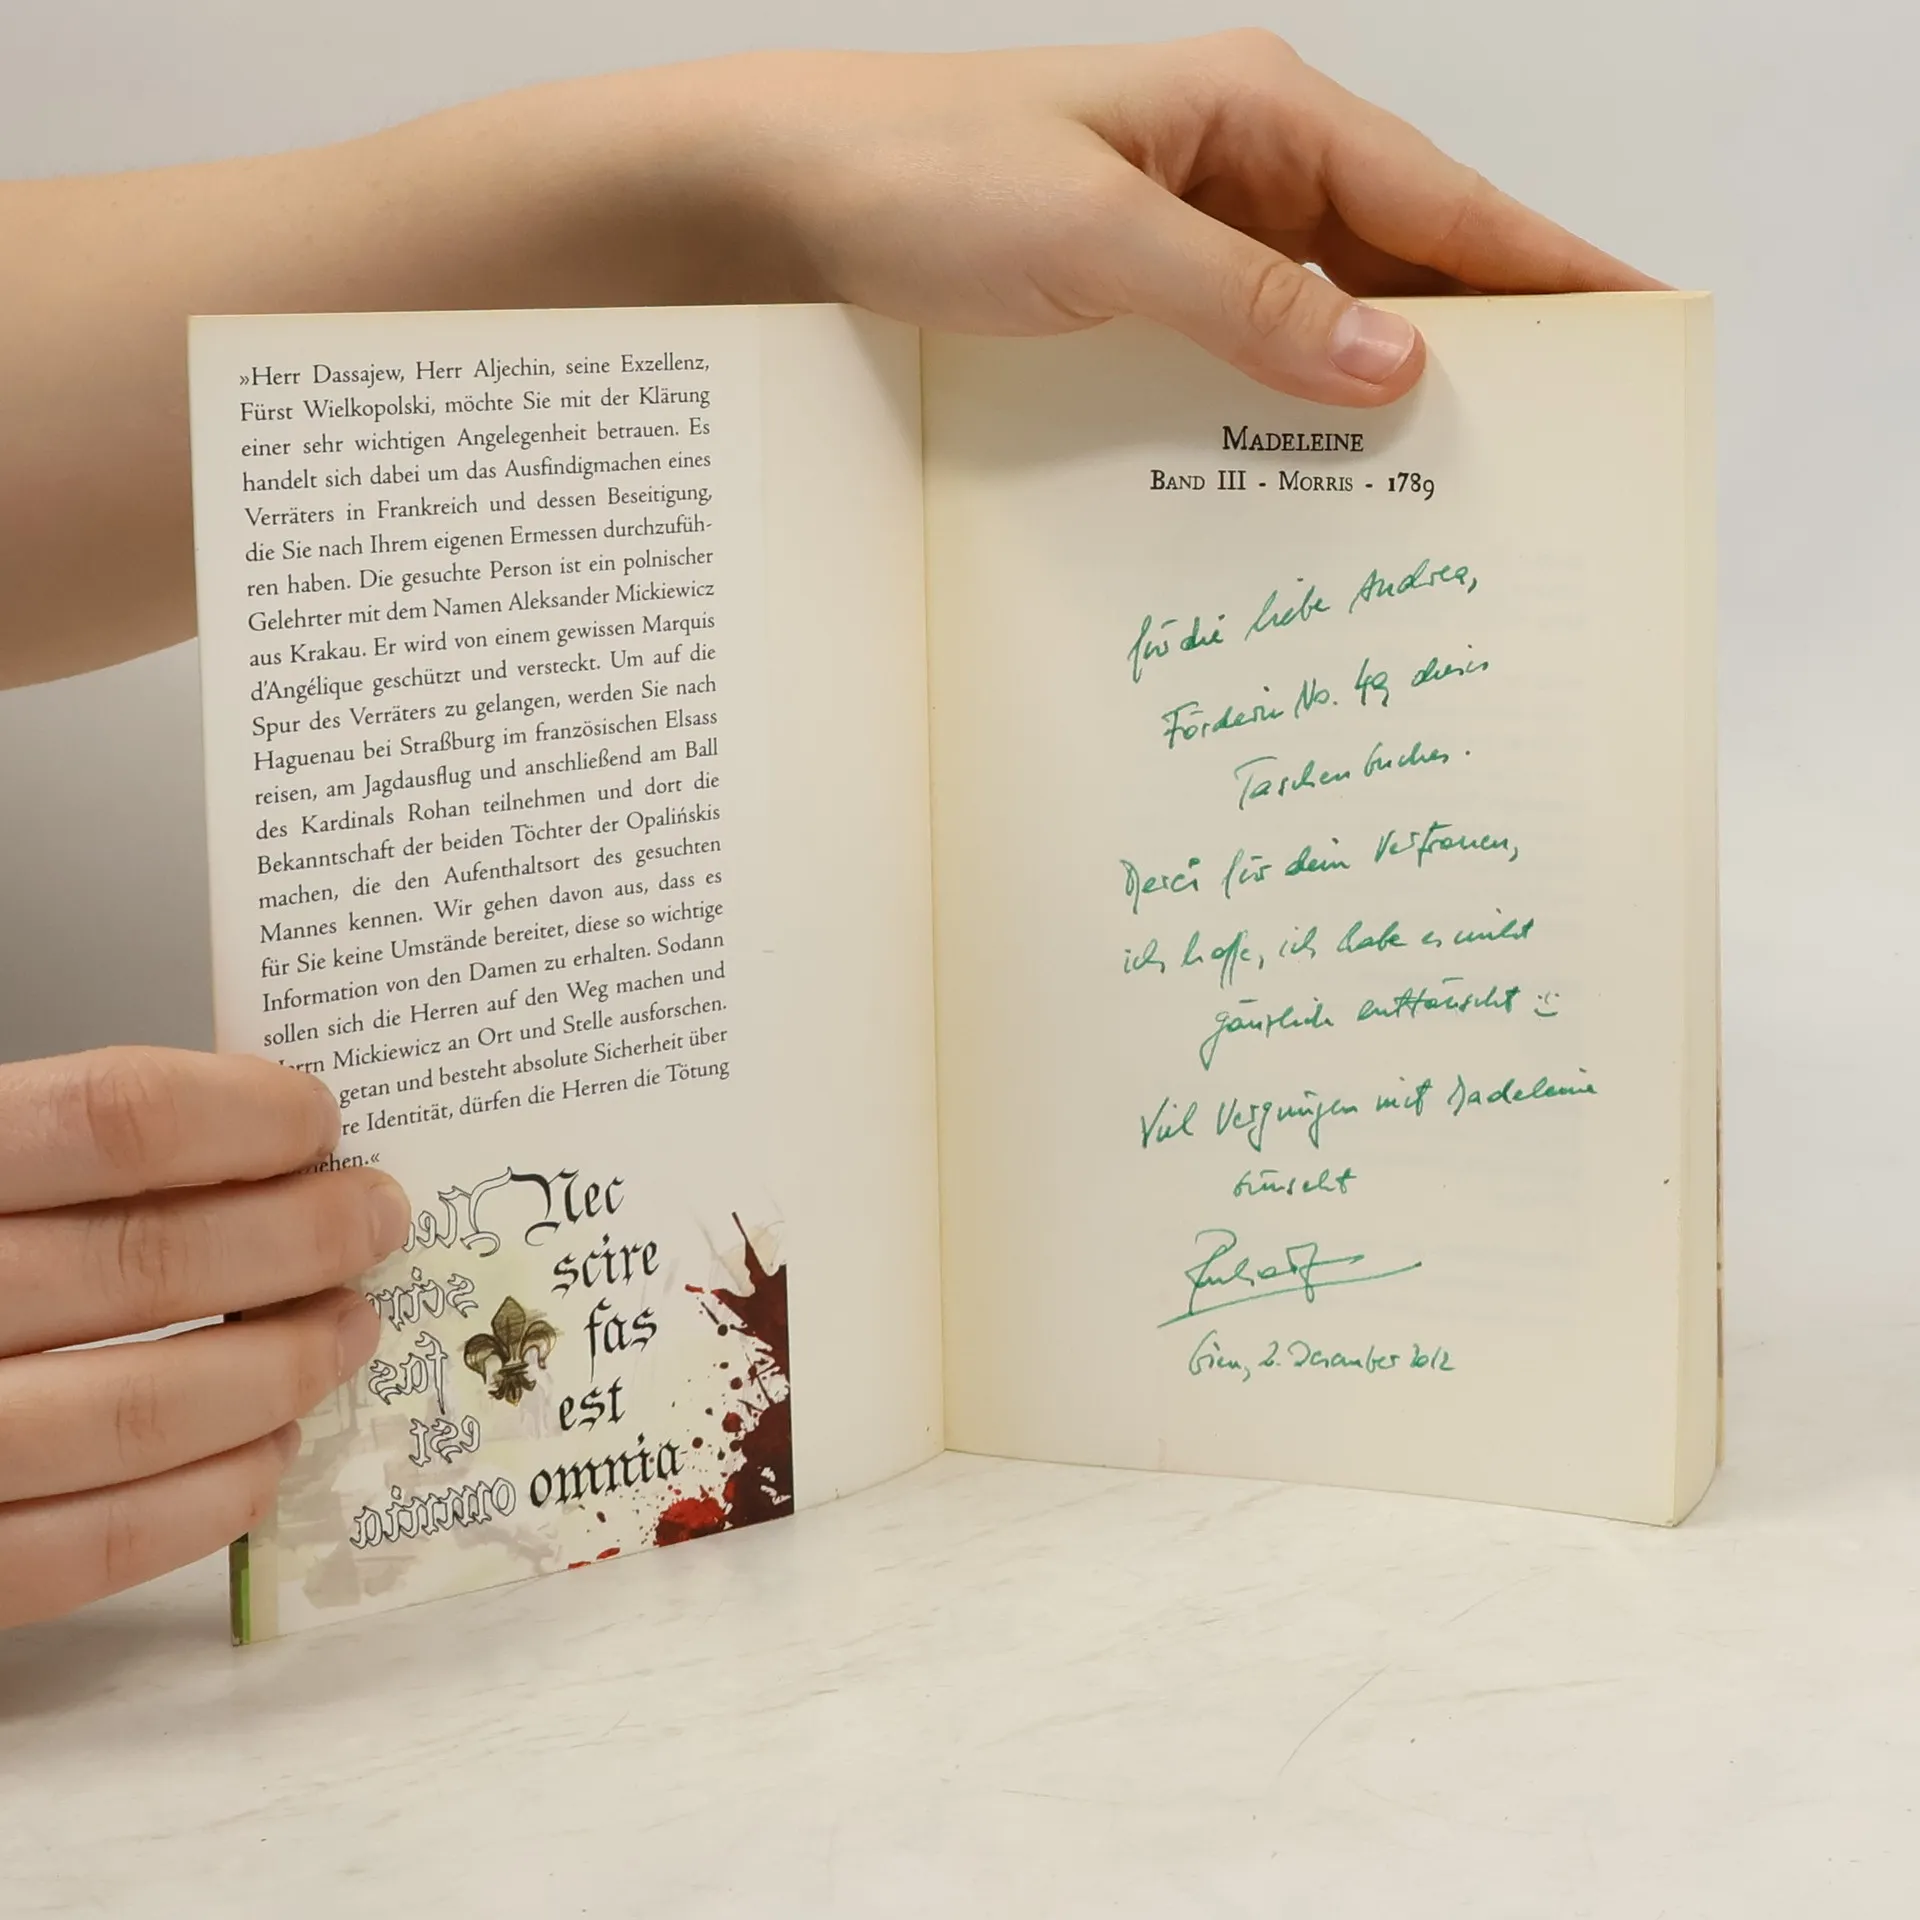 »Herr Dassajew, Herr Aljechin, seine Exzellenz,
Fürst Wielkopolski, möchte Sie mit der Klärung
einer sehr wichtigen Angelegenheit betrauen. Es
handelt sich dabei um das Ausfindigmachen eines
Verräters in Frankreich und dessen Beseitigung,
die Sie nach Ihrem eigenen Ermessen durchzufüh-
ren haben. Die gesuchte Person ist ein polnischer
Gelehrter mit dem Namen Aleksander Mickiewicz
aus Krakau. Er wird von einem gewissen Marquis
d'Angélique geschützt und versteckt. Um auf die
Spur des Verräters zu gelangen, werden Sie nach
Haguenau bei Straßburg im französischen Elsass
reisen, am Jagdausflug und anschließend am Ball
des Kardinals Rohan teilnehmen und dort die
Bekanntschaft der beiden Töchter der Opalińskis
machen, die den Aufenthaltsort des gesuchten
Mannes kennen. Wir gehen davon aus, dass es
für Sie keine Umstände bereitet, diese so wichtige
Information von den Damen zu erhalten. Sodann
sollen sich die Herren auf den Weg machen und
Herrn Mickiewicz an Ort und Stelle ausforschen.
getan und besteht absolute Sicherheit über
re Identität, dürfen die Herren die Tötung
iehen.«
Nec
scire
fas
est
omnia
MADELEINE
BAND III - MORRIS - 1789
für die liebe Andrea,
Förderin No. 49 dieses
Taschenbuches.
Merci für dein Vertrauen,
ich hoffe, ich habe es nicht
gänzlich enttäuscht :)
Viel Vergnügen mit Madeleine
wünscht
Wien, 2. Dezember 2012